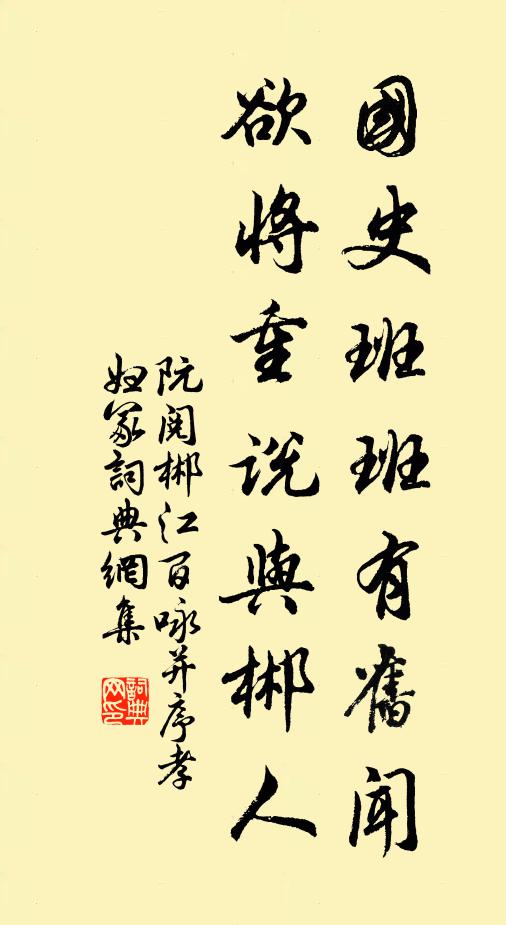 國史班班有舊聞
欲將重說與郴人
阮閱郴江百咏并序孝
婦冢詞典網集
詞典
网印